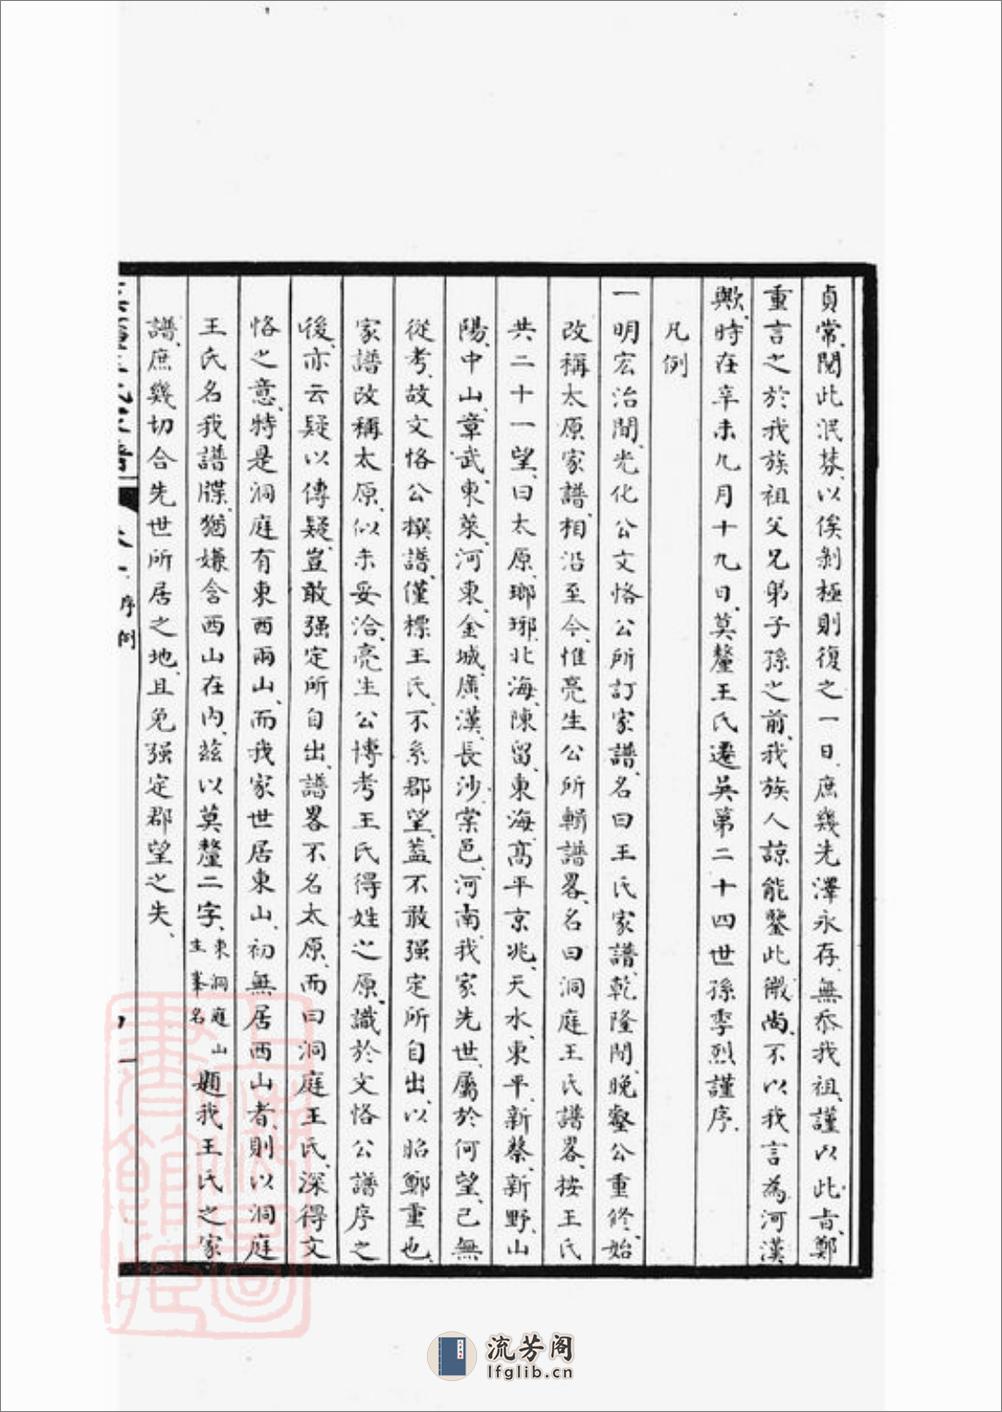 貞常、閱此泯棼、以俟剝極則復之一日、庶幾先澤永存、無忝我祖、謹以此旨、鄭
重言之於我族祖父兄弟子孫之前、我族人諒能鑒此微尚、不以我言為河漢
歟、時在辛未九月十九日、莫釐王氏遷吳第二十四世孫季烈謹序、
凡例
一明宏治間、光化公文恪公所訂家譜、名曰王氏家譜、乾隆間晚壑公重修、始
改稱太原家譜、相沿至今、惟亮生公所輯譜畧、名曰洞庭王氏譜畧、按王氏
共二十一望、曰太原、瑯琊、北海、陳留、東海、高平、京兆、天水、東平、新蔡、新野、山
陽、中山、章武、東萊、河東、金城、廣漢、長沙、棠邑、河南、我家先世、屬於何望、已無
從考、故文恪公撰譜、僅標王氏、不系郡望、蓋不敢强定所自出、以昭鄭重也、
家譜改稱太原、似未妥洽、亮生公博考王氏得姓之原、識於文恪公譜序之
後、亦云疑以傳疑、豈敢强定所自出、譜畧不名太原、而曰洞庭王氏、深得文
恪之意、特是洞庭有東西兩山、而我家世居東山、初無居西山者、則以洞庭
王氏名我譜牒、猶嫌含西山在內、茲以莫釐二字、東洞庭山主峯名題我王氏之家
譜、庶幾切合先世所居之地、且免强定郡望之失、
序例
流芳阁
lfglib.cn